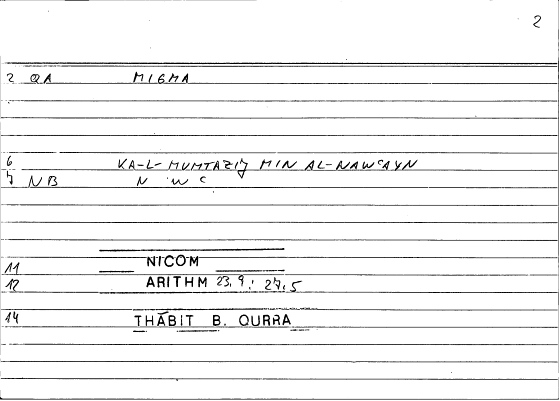 2
2 QA MIGMA
6 KA-L-MUMTAZIǦ MIN AL-NAWʿAYN
7 NB N W ʿ
11 NICOM
12 ARITHM 23,9; 27,5
14 THĀBIT B. QURRA